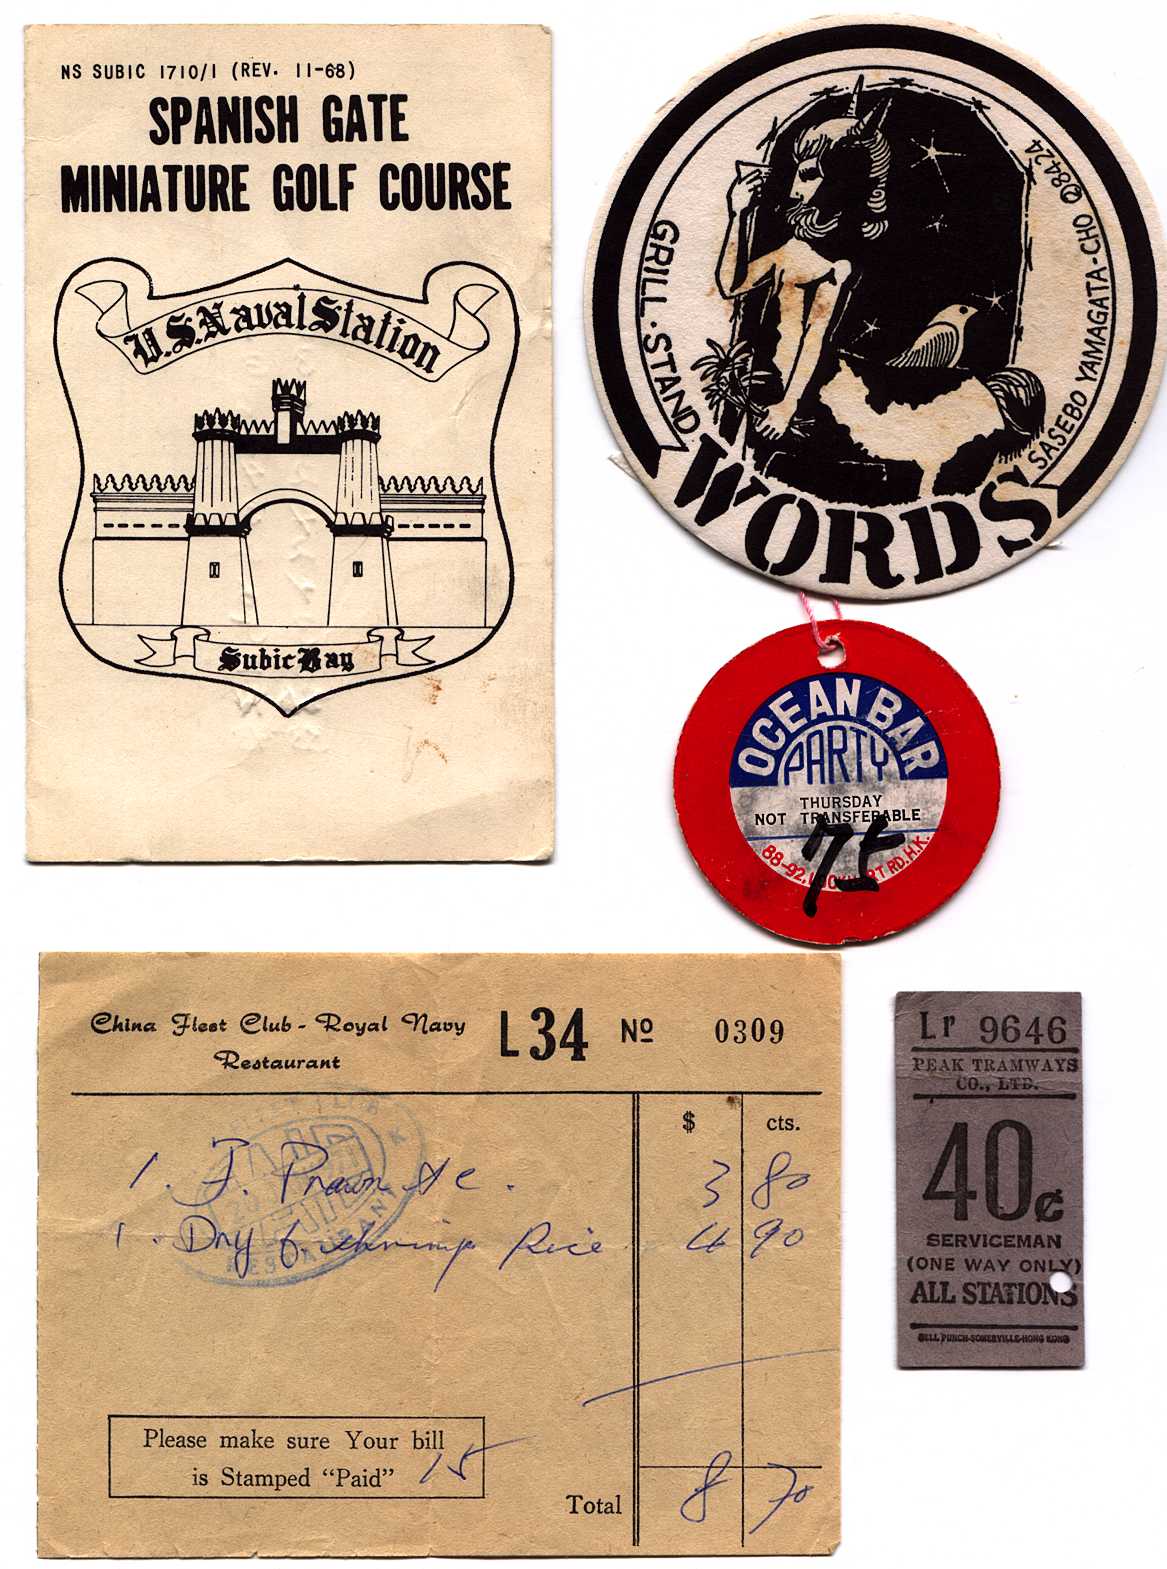 NS SUBIC 1710/1 (REV. 11-68)
SPANISH GATE
MINIATURE GOLF COURSE
U.S. Naval Station
Subic Bay
GRILL·STAND
WORDS
SASEBO YAMAGATA-CHO ②8424
OCEAN BAR
PARTY
THURSDAY
NOT TRANSFERABLE
75
88-92, LOCKHART RD. H.K.
China Fleet Club - Royal Navy
Restaurant
L34 Nº 0309
$ cts.
PAID
RESTAURANT
1. F. Prawn 3 80
1. Dry f. shrimp Rice 4 90
Please make sure Your bill
is Stamped "Paid" 15
Total 8 70
Lr 9646
PEAK TRAMWAYS
CO., LTD.
40¢
SERVICEMAN
(ONE WAY ONLY)
ALL STATIONS
BELL PUNCH-SOMERVILLE-HONG KONG